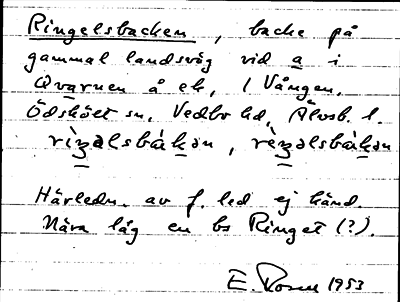 Ringelsbacken, backe på
gammal landsväg vid a i
Qvarnen å ek, 1 Vången,
Ödskölt sn, Vedbo hd, Älvsb. l.
Härledn. av f. led ej känd.
Nära låg en bs Ringet (?).
E. Rosell 1953